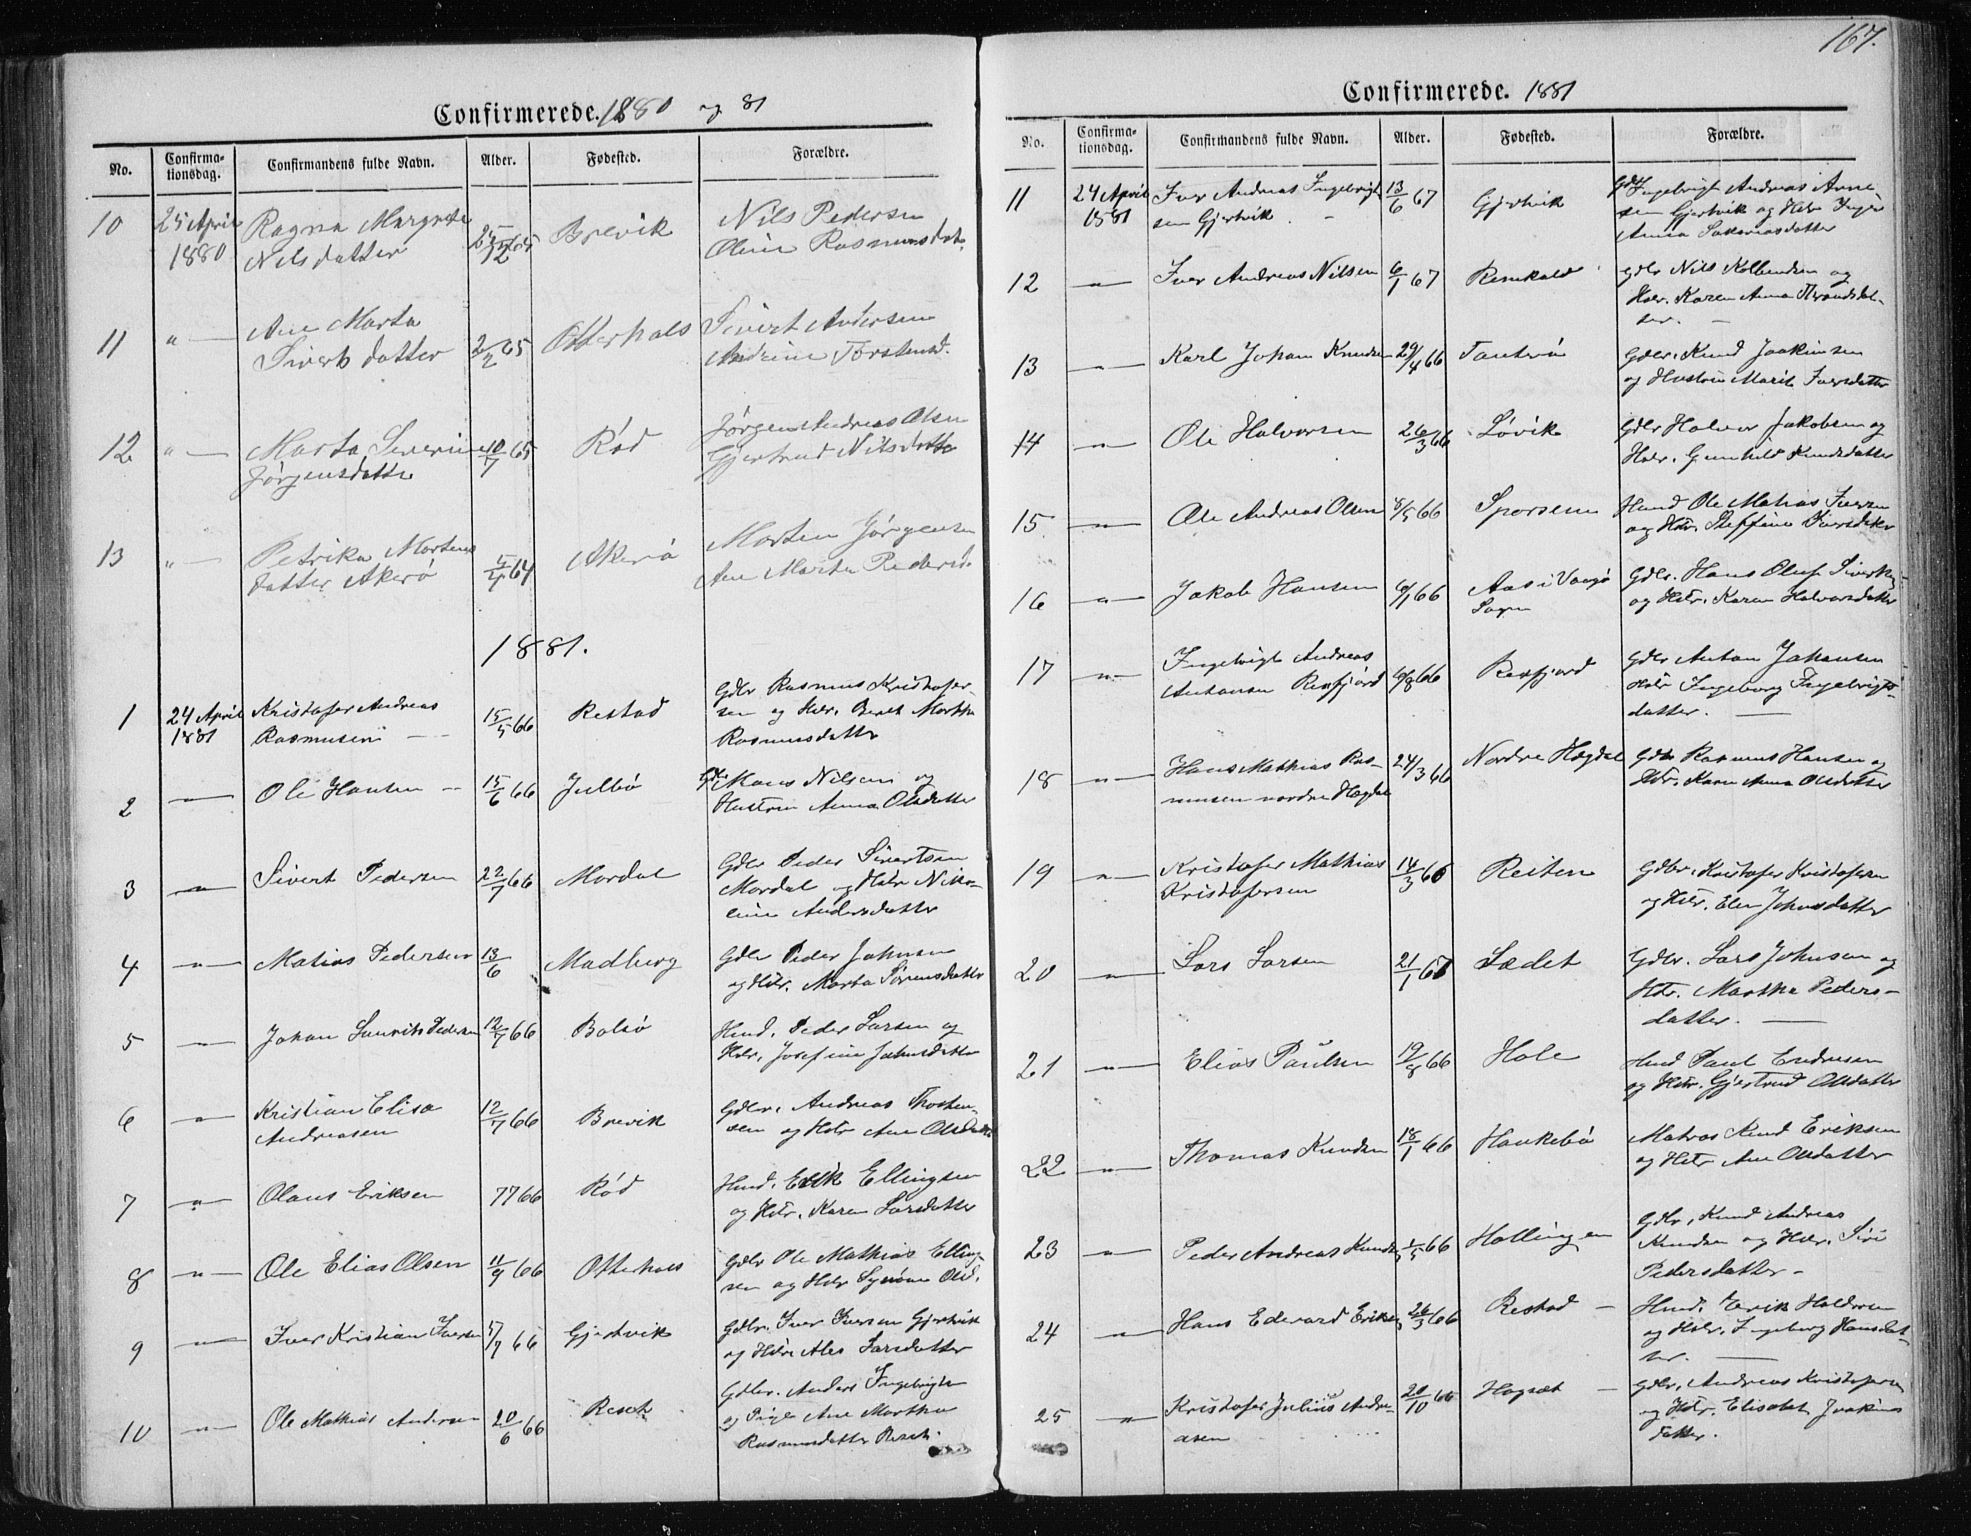 Confirmerede. 1880 og 81
No. Confirma-tionsdag. Confirmandens fulde Navn. Alder. Fødested. Forældre.
10 25 April 1880 Ragna Margrete Nilsdatter 25/12 65 Brevik Nils Pedersen
Oline Rasmusdat.
11 " — Ane Marta Siverts datter 2/2 65 Otterhals Sivert Andersen
Andrine Torstensd.
12 " — Marta Severine Jørgensdatter 10/7 65 Rød Jørgen Andreas Olsen
Gjertrud Nilsdatter
13 " — Petrika Mortens datter Akerø 64 Akerø Morten Jørgensen
Ane Marta Pedersd.
1881.
1 24 April 1881 Kristofer Andreas Rasmussen 15/5 66 Restad Gdbr Rasmus Kristofer-
sen og Hstr. Beret Martha
Rasmusdatter
2 — Ole Hansen 15/6 66 Julbø Gdbr Hans Nilsen og
Hustru Anna Olsdatter
3 — Sivert Pedersen 22/7 66 Mordal Gdbr Peder Sivertsen
Mordal og Hstr Niko-
line Andersdatter
4 — Matias Pedersen 13/6 Madberg Gdbr Peder Johnsen
og Hstr. Marta Sørensdatter
5 — Johan Laurits Pedersen 12/7 66 Bolsø Hmd. Peder Larsen og
Hstr. Josefine Johnsdatter
6 — Kristian Elisa Andreasen 12/7 66 Brevik Gdbr. Andreas Thosten-
sen og Hstr Ane Olsdatter
7 — Olaus Eriksen 7/7 66 Rød Hmd. Erik Ellingsen
og Hstr. Karen Larsdatter
8 — Ole Elias Olsen 11/9 66 Otterhals Gdbr Ole Mathias Elling-
sen og Hstr Synøve Olsd.
9 — Iver Kristian Iversen 5/7 66 Gjertvik Gdbr. Iver Iversen Gjertvik
og Hstr Ales Larsdatter
10 — Ole Mathias Andersen 20/6 66 Reset Gdbr. Anders Ingebrigts
og Pige Ane Martha
Rasmusdatter Reset.
167.
Confirmerede. 1881
No. Confirma-tionsdag. Confirmandens fulde Navn. Alder. Fødested. Forældre.
11 24 April 1881 Iver Andreas Ingebrigt sen Gjertvik 13/6 67 Gjertvik Gdbr Ingebrigt Andreas Arne-
sen Gjertvik og Hstr Inger
Anna Sakariasdatter
12 — Iver Andreas Nilsen 6/1 67 Remkald Gdbr Nils Kolbendsen og
Hstr. Karen Anna Thronsdat-
ter. —
13 — Karl Johan Knudsen 29/4 66 Tautrø Gdbr. Knud Joakimsen
og Hustru Marit Iversdatter
14 — Ole Halvorsen 26/3 66 Løvik Gdbr Halvor Jakobsen og
Hstr. Gunhild Knudsdatter
15 — Ole Andreas Olsen 8/5 66 Sporsem Hmd Ole Matias Iversen
og Hstr. Steffine Iversdatter
16 — Jakob Hansen 66 Aas i Vaagø Sogn Gdbr. Hans Oluf Siverts
og Hstr. Karen Halvorsdatter
17 — Ingebrigt Andreas Antonsen Rexfjord 66 Rexfjord Gdbr Anton Johansen
Hstr Ingeborg Ingebrigts-
datter. —
18 — Hans Mathias Ras-mussen nordre Hægdal 24/3 66 Nordre Hægdal Gdbr Rasmus Hansen og
Hstr. Karen Anna Olsdatter
19 — Kristofer Mathias Kristofersen 14/3 66 Reiten Gdbr. Kristofer Kristofersen
og Hstr. Elen Johnsdatter
20 — Lars Larsen 21/1 67 Sædet Gdbr. Lars Johnsen og
Hstr. Martha Peders-
datter. —
21 — Elias Paulsen 19/8 66 Hole Hmd Paul Endresen
og Hstr. Gjertrud Olsdatter
22 — Thomas Knudsen 18/1 66 Haukebø Matros Knud Eriksen
og Hstr Ane Olsdatter
23 — Peder Andreas Knudsen 1/5 66 Hollingen Gdbr. Knud Andreas
Knudsen og Hstr. Siri
Pedersdatter —
24 — Hans Edevard Eriksen 26/3 66 Restad — Hmd. Erik Haldorsen
og Hstr. Ingeborg Hansdat-
ter. —
25 — Kristofer Julius Andre-asen 20/10 66 Hagsæt — Gdbr. Andreas Kristofersen
og Hstr. Elisabet Joakims
datter.